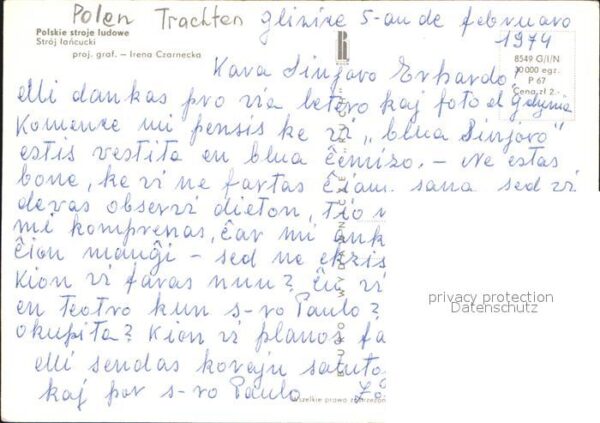 Polen Trachten
Glivice 5-an de februaro
1974
Polskie stroje ludowe
Strój łańcucki
proj. graf. – Irena Czarnecka
8549 G/I/N
10 000 egz.
P 67
Cena zł 2.-
Kara Sinjoro Erhardo!
Mi dankas pro via letero kaj foto el Gdynia
Komence mi pensis ke vi „blua Sinjoro"
estis vestita en blua ĉemizo. – Ne estas
bone, ke vi ne fartas ĉiam sana sed vi
devas observi dieton, Tio
mi komprenas, ĉar mi ank
ĉion manĝi – sed ne ekzis
Kion vi faras nun? Ĉu vi
en teatro kun s-ro Paulo?
okupita? Kion vi planos fa
Mi sendas korajn saluto
kaj por s-ro Paulo
BIURO WYDAWNICZE
Wszelkie prawa zastrzeżon
privacy protection
Datenschutz